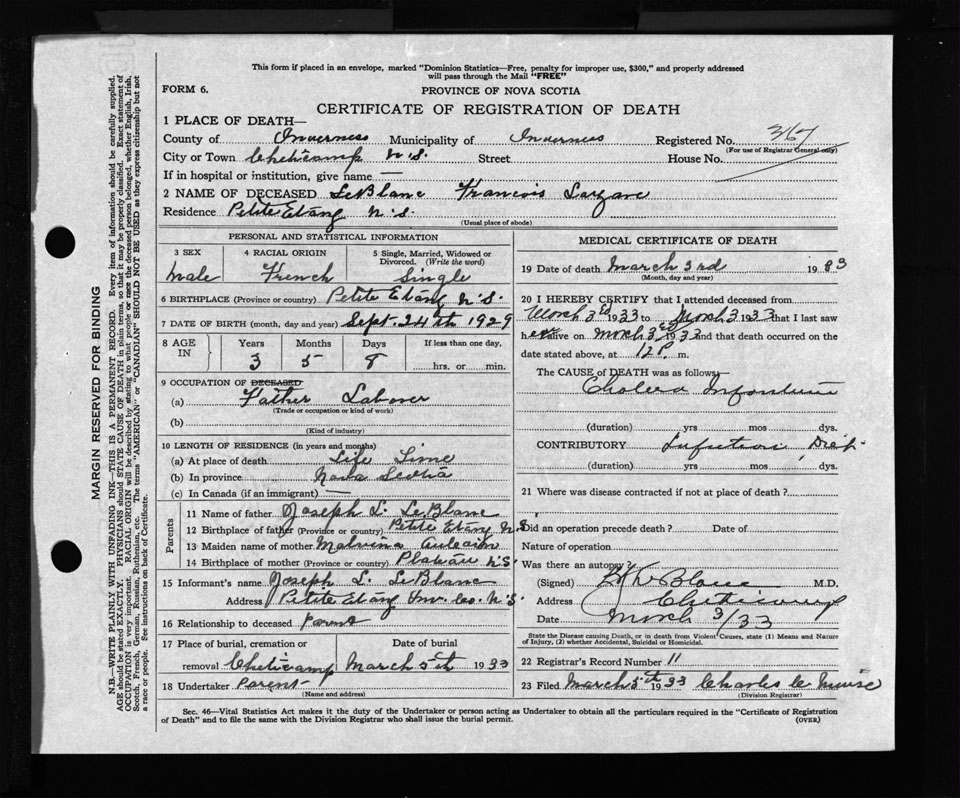 This form if placed in an envelope, marked "Dominion Statistics—Free, penalty for improper use, $300," and properly addressed
will pass through the Mail "FREE"
FORM 6.
PROVINCE OF NOVA SCOTIA
CERTIFICATE OF REGISTRATION OF DEATH
1 PLACE OF DEATH—
County of Inverness Municipality of Inverness Registered No. 367
(For use of Registrar General only)
City or Town Cheticamp N.S. Street House No.
If in hospital or institution, give name —
2 NAME OF DECEASED LeBlanc Francois Lazare
Residence Petite Etang N.S.
(Usual place of abode)
PERSONAL AND STATISTICAL INFORMATION
3 SEX 4 RACIAL ORIGIN 5 Single, Married, Widowed or
Divorced. (Write the word)
Male French Single
6 BIRTHPLACE (Province or country) Petite Etang N.S.
7 DATE OF BIRTH (month, day and year) Sept. 24th 1929
8 AGE IN Years Months Days If less than one day,
3 5 8 hrs. or min.
9 OCCUPATION OF DECEASED
(a) Father Laborer
(Trade or occupation or kind of work)
(b)
(Kind of industry)
10 LENGTH OF RESIDENCE (in years and months)
(a) At place of death Life Time
(b) In province Nova Scotia
(c) In Canada (if an immigrant) —
Parents
11 Name of father Joseph L. LeBlanc
12 Birthplace of father (Province or country) Petite Etang N.S
13 Maiden name of mother Malvina Aucoin
14 Birthplace of mother (Province or country) Plateau N.S.
15 Informant's name Joseph L. LeBlanc
Address Petite Etang Inv. Co. N.S.
16 Relationship to deceased Parent
17 Place of burial, cremation or Date of burial
removal Cheticamp March 5th 1933
18 Undertaker Parent
(Name and address)
MEDICAL CERTIFICATE OF DEATH
19 Date of death March 3rd 1933
(Month, day and year)
20 I HEREBY CERTIFY that I attended deceased from
March 3rd 1933 to March 3 1933 that I last saw
h alive on March 3rd 1933 and that death occurred on the
date stated above, at 12 P. m.
The CAUSE of DEATH was as follows—
Cholera Infantum
(duration) yrs mos dys.
CONTRIBUTORY Infection
(duration) yrs mos dys.
21 Where was disease contracted if not at place of death?
Did an operation precede death? Date of
Nature of operation
Was there an autopsy?
(Signed) M.D.
Address Cheticamp
Date March 3/33
State the Disease causing Death, or in death from Violent Causes, state (1) Means and Nature
of Injury, (2) whether Accidental, Suicidal or Homicidal.
22 Registrar's Record Number 11
23 Filed March 5th 1933 Charles
(Division Registrar)
Sec. 46—Vital Statistics Act makes it the duty of the Undertaker or person acting as Undertaker to obtain all the particulars required in the "Certificate of Registration
of Death" and to file the same with the Division Registrar who shall issue the burial permit.
(OVER)
MARGIN RESERVED FOR BINDING
N.B.—WRITE PLAINLY WITH UNFADING INK—THIS IS A PERMANENT RECORD. Every item of information should be carefully supplied.
AGE should be stated EXACTLY. PHYSICIANS should STATE CAUSE OF DEATH in plain terms, so that it may be properly classified. Exact statement of
OCCUPATION is very important. RACIAL ORIGIN will be described by stating to what people or race the deceased person belonged, whether English, Irish,
Scotch, French, German, Russian, Ruthenian, etc. The terms "AMERICAN" or "CANADIAN" SHOULD NOT BE USED as they express citizenship but not
a race or people. See instructions on back of Certificate.